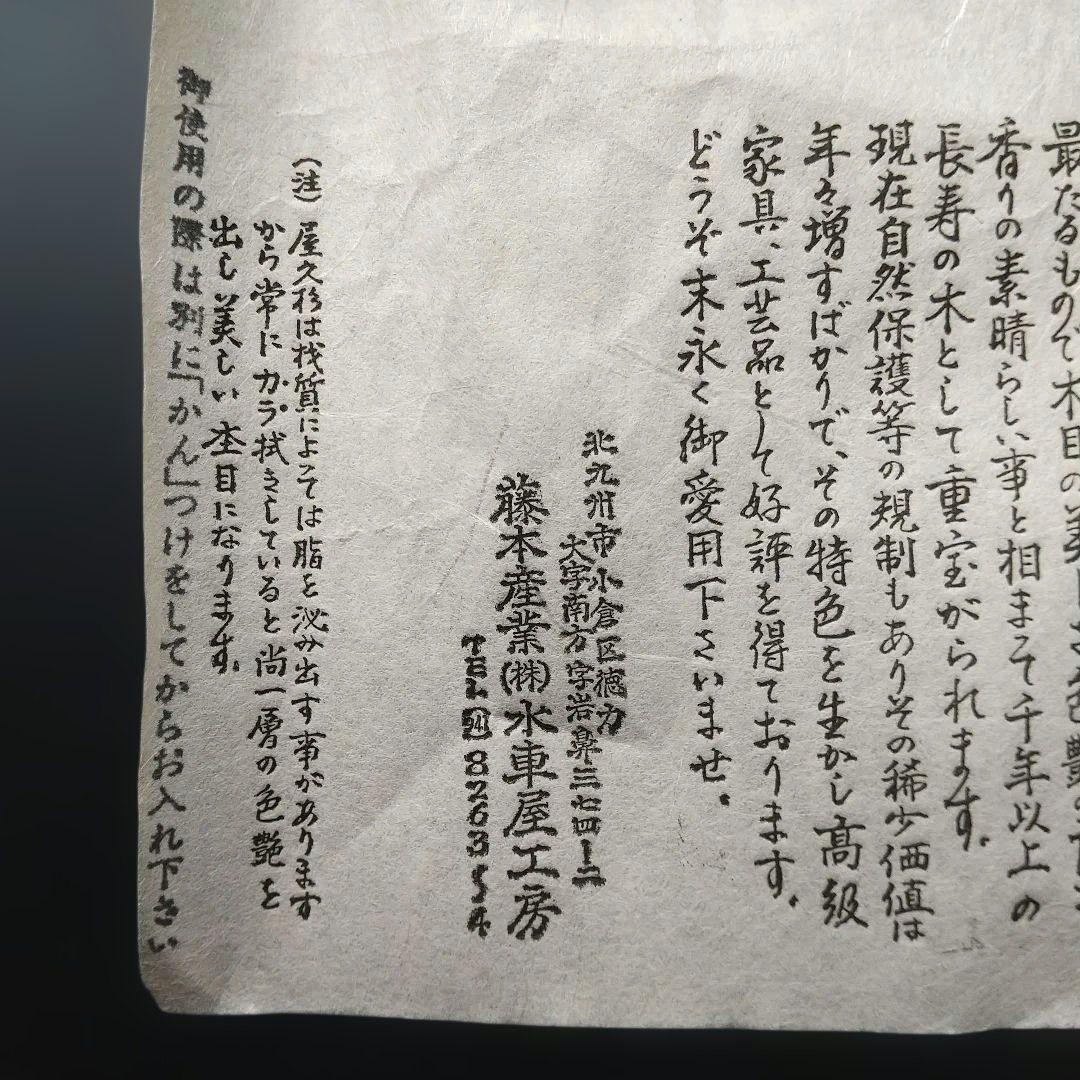 最たるもので木目の美しさ色艶の
香りの素晴らしい事と相まって千年以上の
長寿の木として重宝がられます。
現在自然保護等の規制もありその稀少価値は
年々増すばかりで、その特色を生かし高級
家具、工芸品として好評を得ております。
どうぞ末永く御愛用下さいませ。
北九州市小倉区徳力
大字南方字岩鼻三七四ー二
藤本産業(株)水車屋工房
TEL(941)8263~4
(注)屋久杉は材質によっては脂を泌み出す事があります
から常にカラ拭きしていると尚一層の色艶を
出し美しい杢目になります。
御使用の際は別に「かん」つけをしてからお入れ下さい